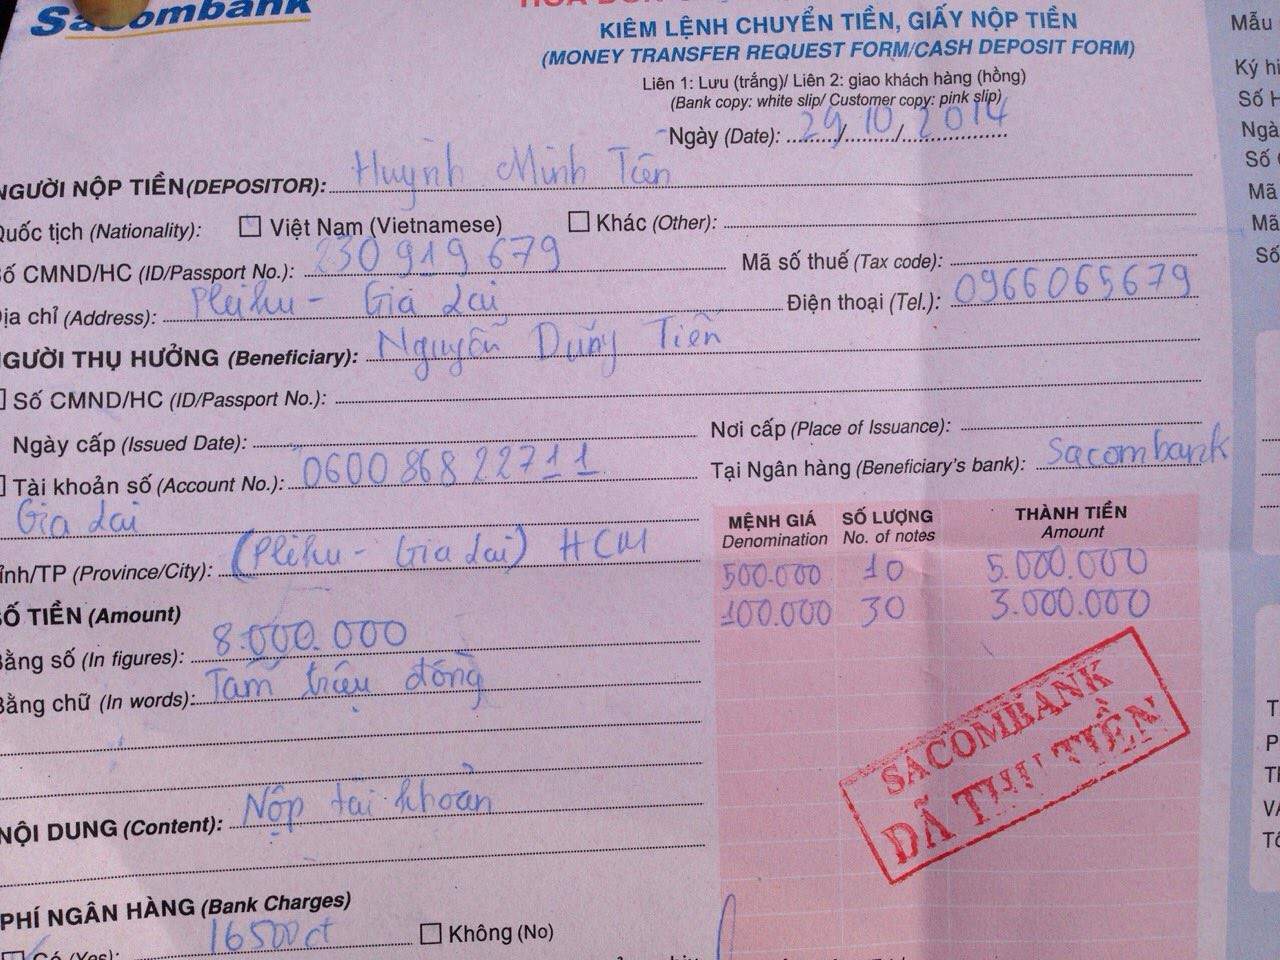 Sacombank
KIÊM LỆNH CHUYỂN TIỀN, GIẤY NỘP TIỀN
(MONEY TRANSFER REQUEST FORM/CASH DEPOSIT FORM)
Liên 1: Lưu (trắng)/ Liên 2: giao khách hàng (hồng)
(Bank copy: white slip/ Customer copy: pink slip)
Ngày (Date): 29/10/2014
NGƯỜI NỘP TIỀN (DEPOSITOR): Huỳnh Minh Tiên
Quốc tịch (Nationality): Việt Nam (Vietnamese) Khác (Other):
Số CMND/HC (ID/Passport No.): 230919679 Mã số thuế (Tax code):
Địa chỉ (Address): Pleiku - Gia Lai Điện thoại (Tel.): 0966065679
NGƯỜI THỤ HƯỞNG (Beneficiary): Nguyễn Tiến
Số CMND/HC (ID/Passport No.):
Ngày cấp (Issued Date): Nơi cấp (Place of Issuance):
Tài khoản số (Account No.): 060086822711 Tại Ngân hàng (Beneficiary's bank): Sacombank
Gia Lai
Tỉnh/TP (Province/City): (Pleiku - Gia Lai) HCM
MỆNH GIÁ SỐ LƯỢNG THÀNH TIỀN
Denomination No. of notes Amount
500.000 10 5.000.000
100.000 30 3.000.000
SỐ TIỀN (Amount)
Bằng số (In figures): 8.000.000
Bằng chữ (In words): Tám triệu đồng
SACOMBANK
ĐÃ THU TIỀN
NỘI DUNG (Content): Nộp tài khoản
PHÍ NGÂN HÀNG (Bank Charges)
Có (Yes): 16500đ Không (No)
Mẫu
Ký hi
Số H
Ngà
Số
Mã
Mã
Số